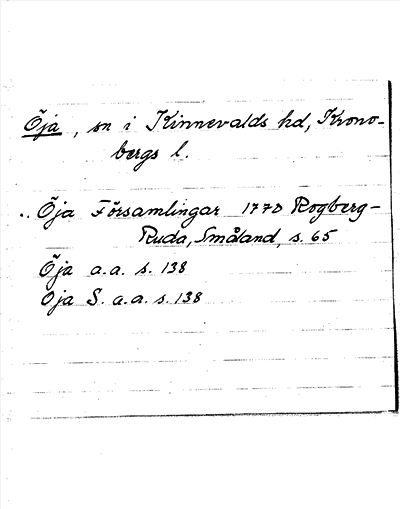 Öja, sn i Kinnevalds hd, Krono-
bergs l.
Öja Församlingar 1770 Rogberg-
Ruda, Småland, s. 65
Öja a.a. s. 138
Öja S. a.a. s. 138